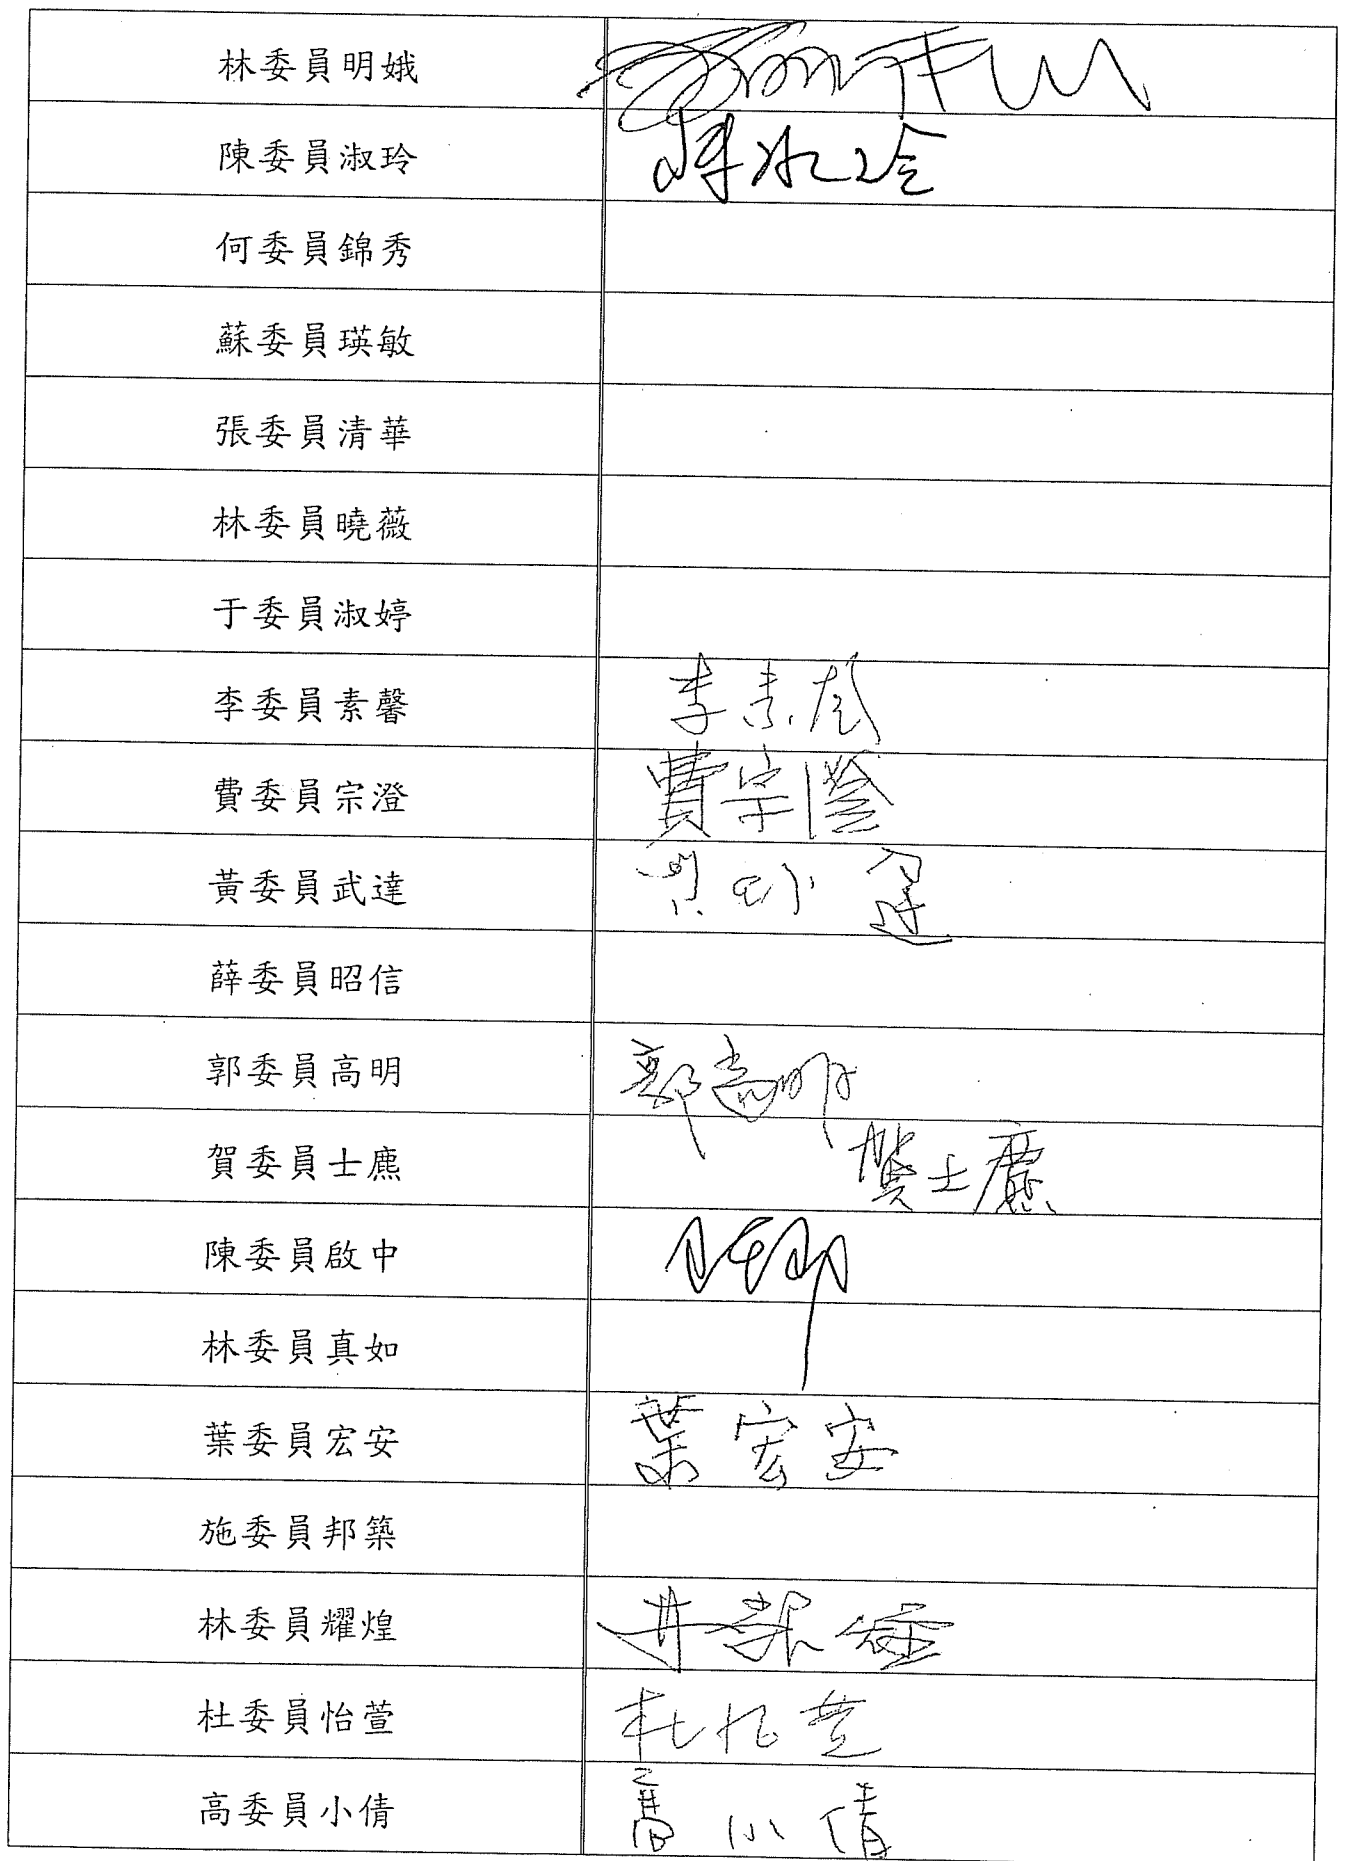 林委員明娥
陳委員淑玲 陳淑玲
何委員錦秀
蘇委員瑛敏
張委員清華
林委員曉薇
于委員淑婷
李委員素馨 李素馨
費委員宗澄 費宗澄
黃委員武達 黃武達
薛委員昭信
郭委員高明 郭高明
賀委員士麃 賀士麃
陳委員啟中
林委員真如
葉委員宏安 葉宏安
施委員邦築
林委員耀煌
杜委員怡萱 杜怡萱
高委員小倩 高小倩